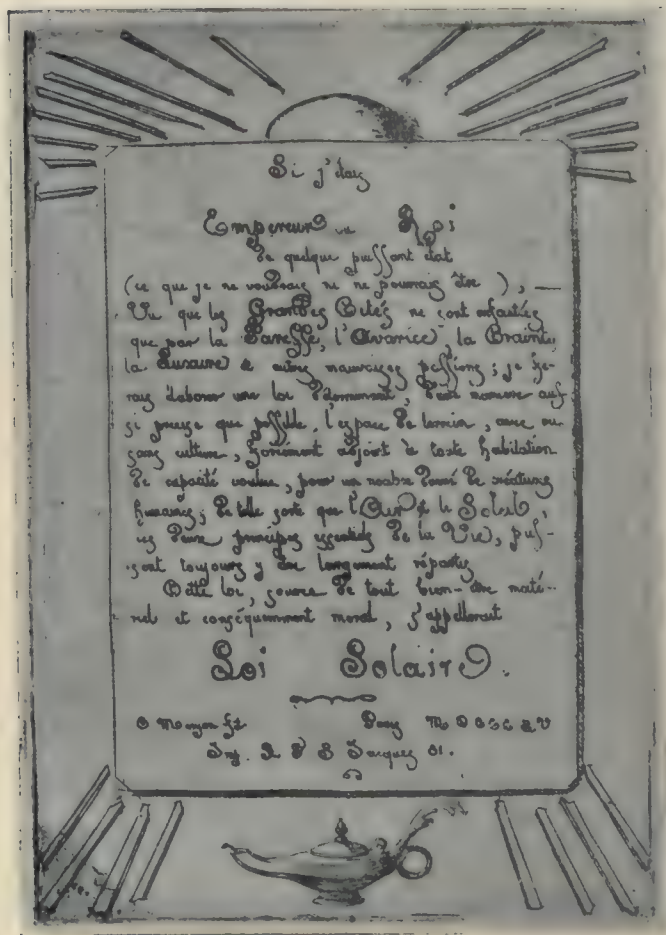 Si j'étais
Empereur ou Roi
de quelque puissant état
(ce que je ne voudrais ni ne pourrais être),
Vu que les Grandes Cités ne sont enfantées
que par la Paresse, l'Avarice, la Crainte,
la Luxure & autres mauvaises passions; je fe-
rais élaborer une loi déterminant, d'une manière aus-
si précise que possible, l'espace de terrain, avec ou
sans culture, forcément adjoint à toute habitation
de capacité voulue, pour un nombre donné de créatures
humaines; de telle sorte que l'Air & le Soleil,
ces deux principes essentiels de la Vie, puis-
sent toujours y être largement répartis
Cette loi, source de tout bien-être maté-
riel et conséquemment moral, s'appellerait
Loi Solaire.
C Meryon fit Paris
Imp. S Jacques